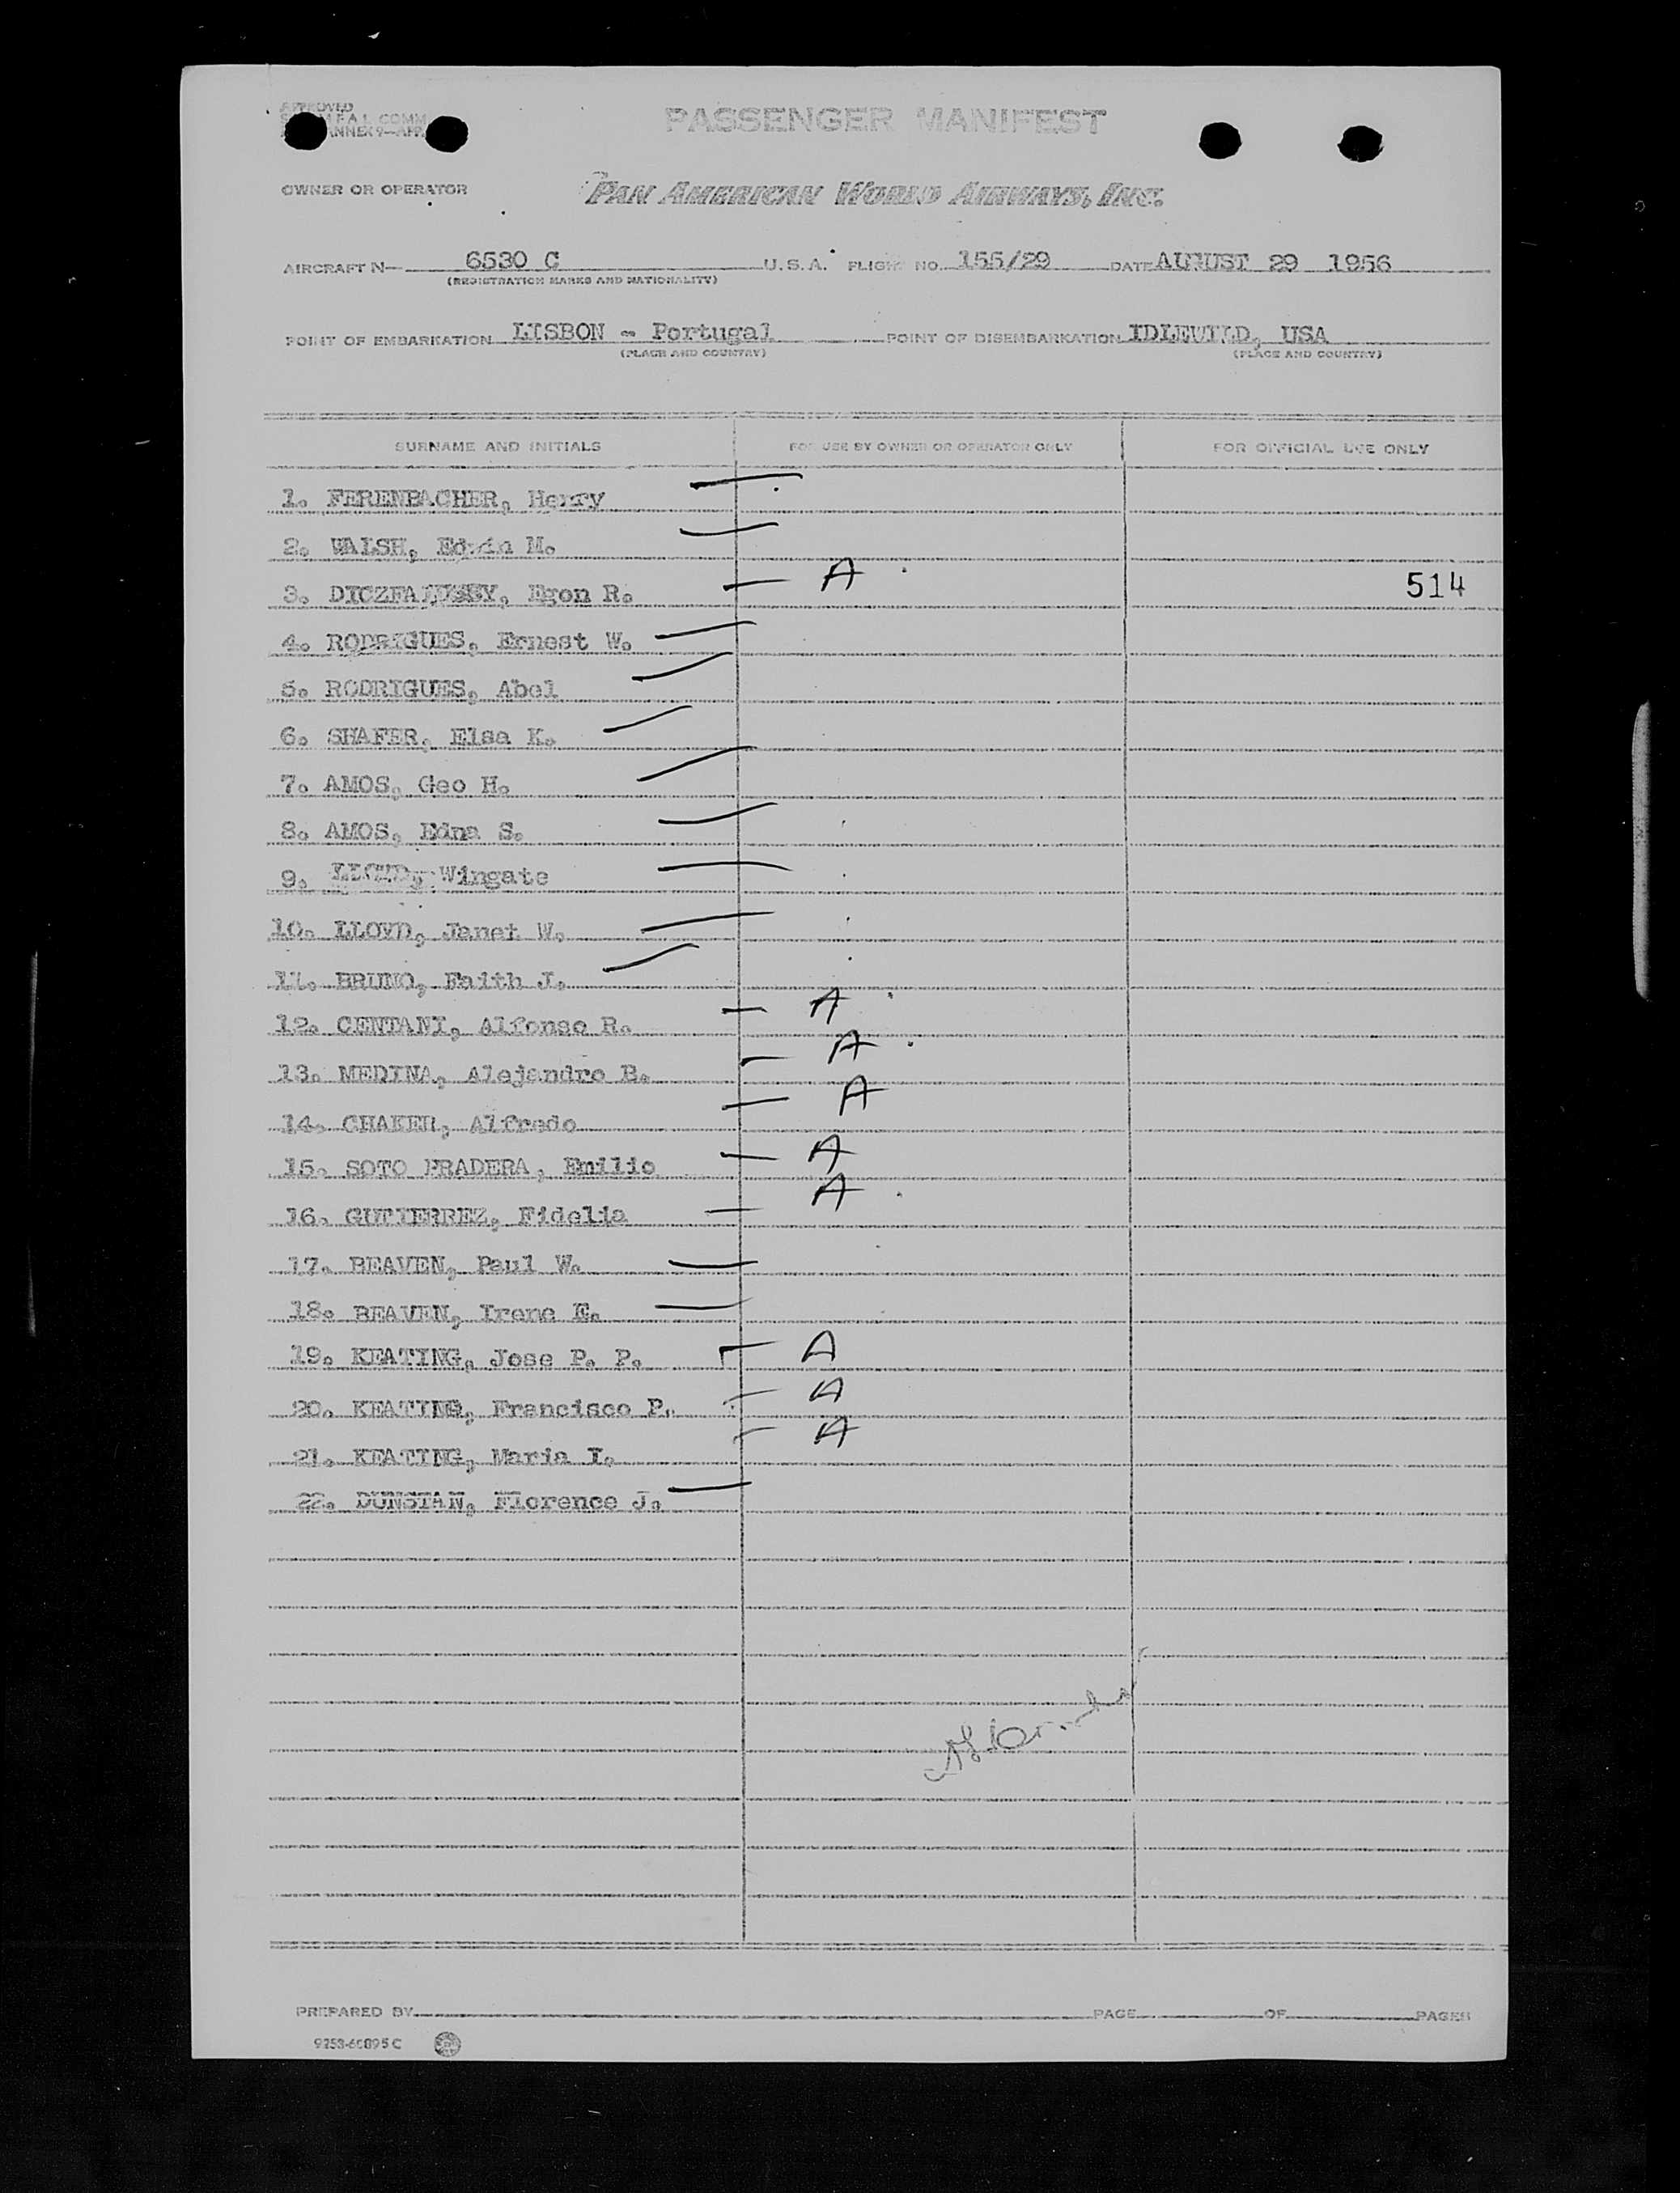 APPROVED
F.A.L. COMM
ANNEX 9—APP.
PASSENGER MANIFEST
OWNER OR OPERATOR PAN AMERICAN WORLD AIRWAYS, INC.
AIRCRAFT N— 6530 C U.S.A. FLIGHT NO. 155/29 DATE AUGUST 29 1956
(REGISTRATION MARKS AND NATIONALITY)
POINT OF EMBARKATION LISBON - Portugal POINT OF DISEMBARKATION IDLEWILD, USA
(PLACE AND COUNTRY) (PLACE AND COUNTRY)
SURNAME AND INITIALS FOR USE BY OWNER OR OPERATOR ONLY FOR OFFICIAL USE ONLY
1. FERENBACHER, Henry
2. WALSH, Edwin M.
3. Egon R. — A 514
4. RODRIGUES, Ernest W.
5. RODRIGUES, Abel
6. SHAFER, Elsa K.
7. AMOS, Geo H.
8. AMOS, Edna S.
9. LLOYD, Wingate
10. LLOYD, Janet W.
11. BRUNO, Faith J.
12. CENTANI, Alfonso R. — A
13. MEDINA, Alejandro B. — A
14. CHAKER, Alfredo — A
15. SOTO PRADERA, Emilio — A
16. GUTIERREZ, Fidelia — A
17. BEAVEN, Paul W.
18. BEAVEN, Irene E.
19. KEATING, Jose P. P. — A
20. KEATING, Francisco P. — A
21. KEATING, Maria I. — A
22. DUNSTAN, Florence J.
PREPARED BY PAGE OF PAGES